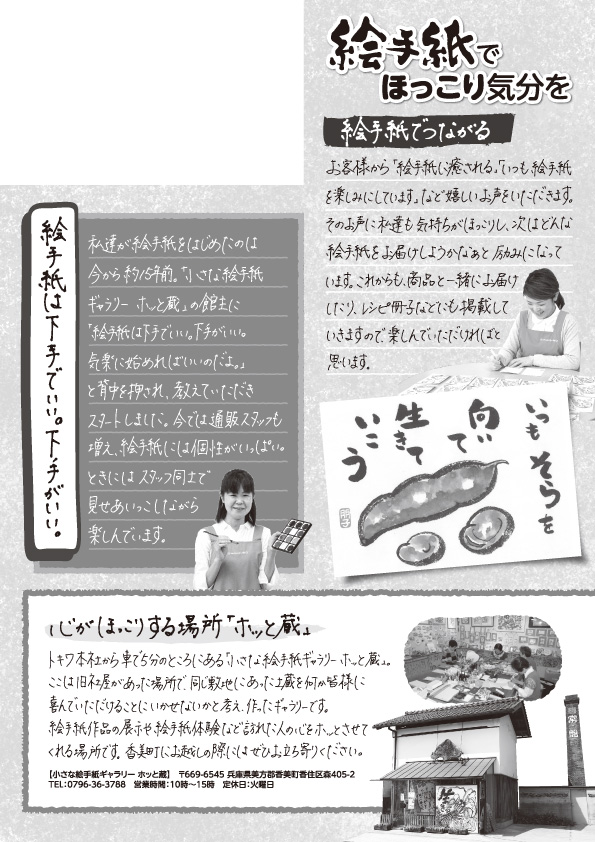 絵手紙で
ほっこり気分を
絵手紙でつながる
お客様から「絵手紙に癒される。」「いつも絵手紙
を楽しみにしています。」など嬉しいお声をいただきます。
そのお声に私達も気持ちがほっこりし、次はどんな
絵手紙をお届けしようかなあと励みになって
います。これからも、商品と一緒にお届け
したり、レシピ冊子などにも掲載して
いきますので、楽しんでいただければと
思います。
いつもそらを
向いて
生きて
いこう
絵手紙は下手でいい。下手がいい。
私達が絵手紙をはじめたのは
今から約15年前。「小さな絵手紙
ギャラリー ホッと蔵」の館主に
「絵手紙は下手でいい。下手がいい。
気楽に始めればいいのだよ。」
と背中を押され、教えていただき
スタートしました。今では通販スタッフも
増え、絵手紙には個性がいっぱい。
ときにはスタッフ同士で
見せあいっこしながら
楽しんでいます。
心がほっこりする場所「ホッと蔵」
トキワ本社から車で5分のところにある「小さな絵手紙ギャラリー ホッと蔵」。
ここは旧社屋があった場所で、同じ敷地にあった土蔵を何か皆様に
喜んでいただけることにいかせないかと考え、作ったギャラリーです。
絵手紙作品の展示や絵手紙体験など訪れた人の心をホッとさせて
くれる場所です。香美町にお越しの際にはぜひお立ち寄りください。
【小さな絵手紙ギャラリー ホッと蔵】 〒669-6545 兵庫県美方郡香美町香住区森405-2
TEL:0796-36-3788 営業時間:10時〜15時 定休日:火曜日